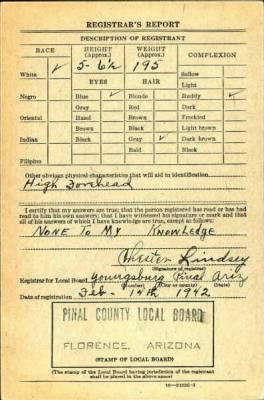 REGISTRAR'S REPORT
DESCRIPTION OF REGISTRANT
RACE HEIGHT (Approx.) WEIGHT (Approx.) COMPLEXION
White ✓ 5-6½ 195 Sallow
Light
EYES HAIR
Negro Blue ✓ Blonde Ruddy ✓
Gray Red Dark
Oriental Hazel Brown Freckled
Brown Black Light brown
Indian Black Gray ✓ Dark brown
Bald Black
Filipino
Other obvious physical characteristics that will aid in identification
High Forehead
I certify that my answers are true; that the person registered has read or has had
read to him his own answers; that I have witnessed his signature or mark and that
all of his answers of which I have knowledge are true, except as follows:
NONE TO MY KNOWLEDGE
Lindsey
(Signature of registrar)
Registrar for Local Board Pinal Ariz
(Number) (City or county) (State)
Date of registration Feb- 14th 1942
PINAL COUNTY LOCAL BOARD
FLORENCE, ARIZONA
(STAMP OF LOCAL BOARD)
(The stamp of the Local Board having jurisdiction of the registrant
shall be placed in the above space)